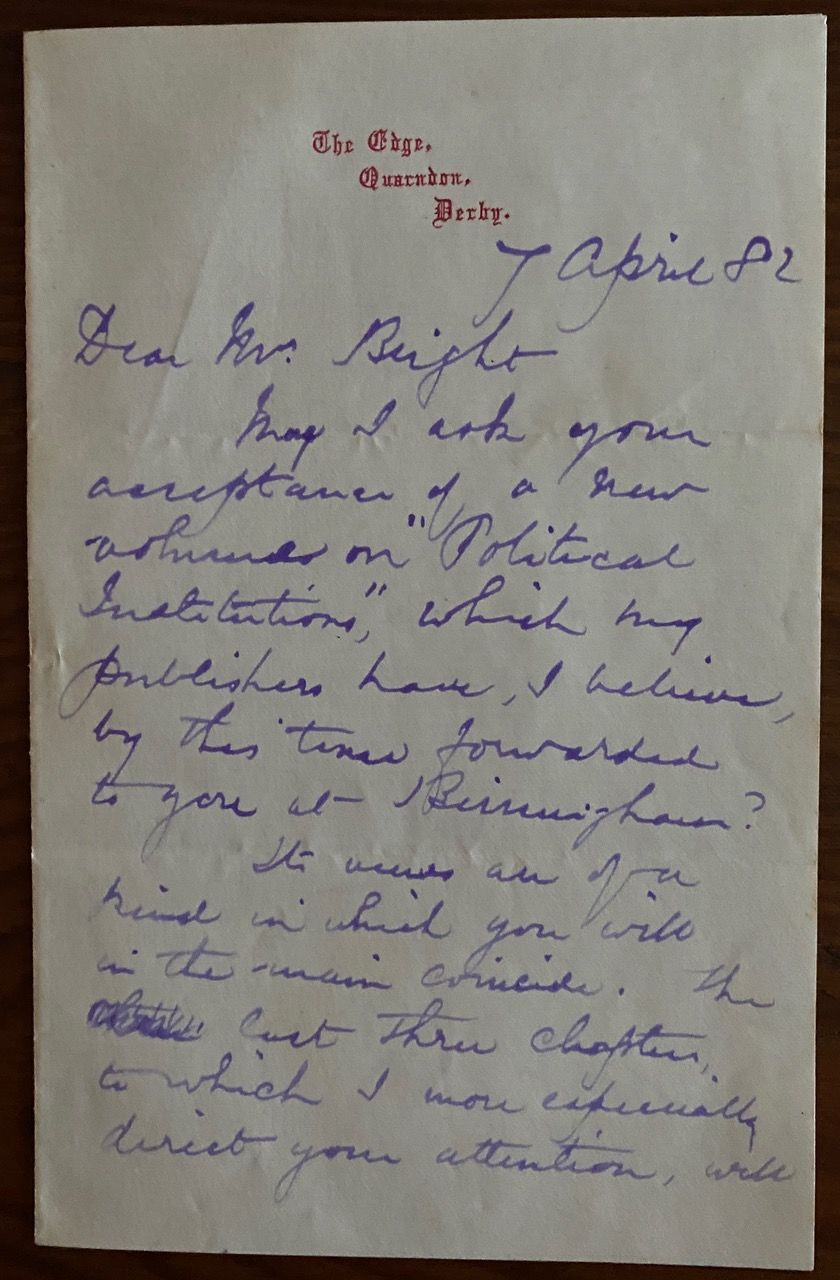 The Edge,
Quarndon,
Derby.
7 April 82
Dear Mr. Bright
May I ask your
acceptance of a new
volume on "Political
Institutions," which my
publishers have, I believe,
by this time forwarded
to you at Birmingham?
Its views are of a
kind in which you will
in the main coincide. The
last three chapters,
to which I more especially
direct your attention, will